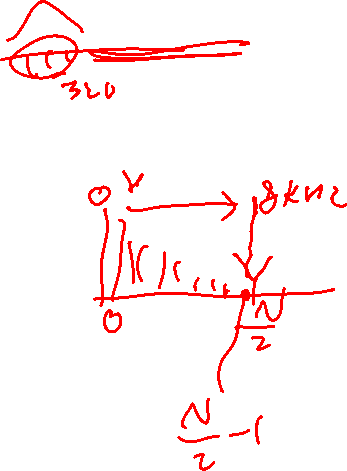 320
0
8kHz
0
N/2
N/2 -1